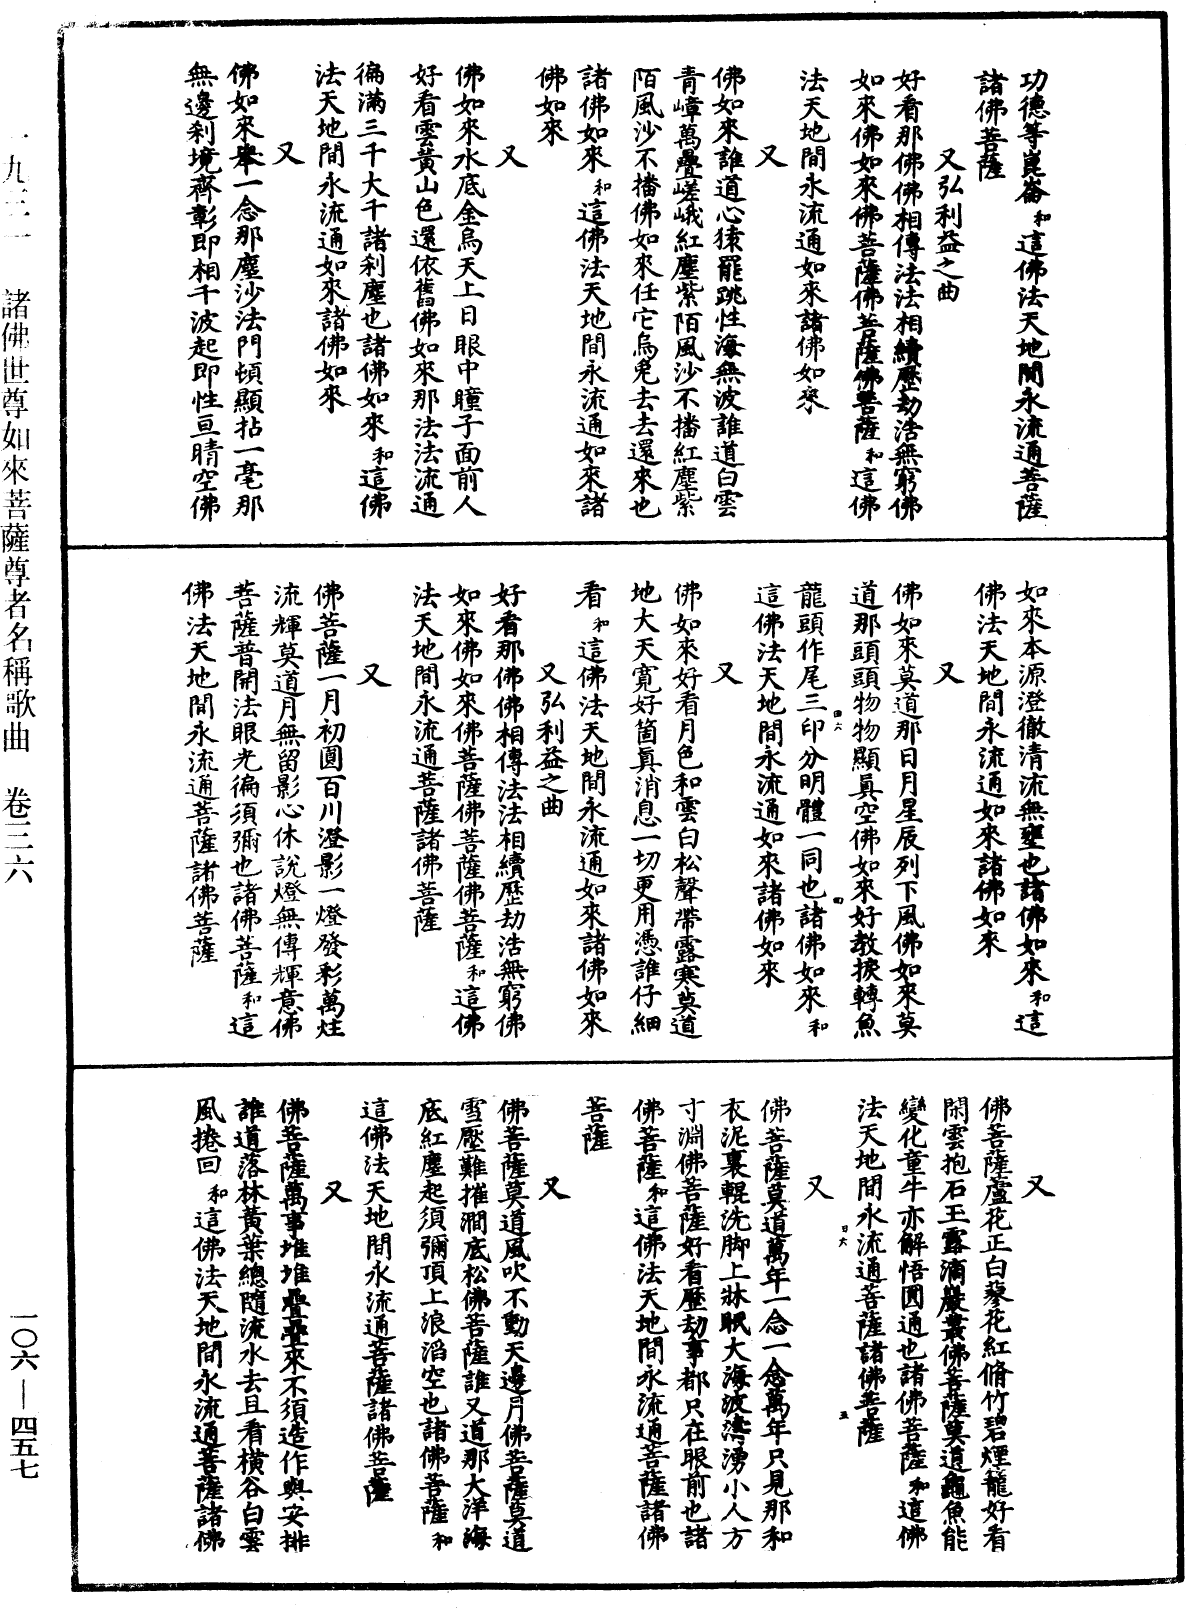 功德等崑崙和這佛法天地間永流通菩薩
諸佛菩薩
又弘利益之曲
好看那佛佛相傳法法相續歷劫浩無窮佛
如來佛如來佛菩薩佛菩薩佛菩薩和這佛
法天地間永流通如來諸佛如來
又
佛如來誰道心猿罷跳性海無波誰道白雲
青嶂萬疊嵯峨紅塵紫陌風沙不播紅塵紫
陌風沙不播佛如來任它烏兎去去還來也
諸佛如來和這佛法天地間永流通如來諸
佛如來
又
佛如來水底金烏天上日眼中瞳子面前人
好看雲黃山色還依舊佛如來那法法流通
徧滿三千大千諸利塵也諸佛如來和這佛
法天地間永流通如來諸佛如來
又
佛如來舉一念那塵沙法門頓顯拈一毫那
無邊刹境齊彰即相千波起即性亘晴空佛
如來本源澄徹清流無壅也諸佛如來和這
佛法天地間永流通如來諸佛如來
又
佛如來莫道那日月星辰列下風佛如來莫
道那頭頭物物顯真空佛如來好教捩轉魚
龍頭作尾三印分明體一同也諸佛如來和
這佛法天地間永流通如來諸佛如來
又
佛如來好看月色和雲白松聲帶露寒莫道
地大天寬好箇真消息一切更用憑誰仔細
看和這佛法天地間永流通如來諸佛如來
又弘利益之曲
好看那佛佛相傳法法相續歷劫浩無窮佛
如來佛如來佛菩薩佛菩薩佛菩薩和這佛
法天地間永流通菩薩諸佛菩薩
又
佛菩薩一月初圓百川澄影一燈發彩萬炷
流輝莫道月無留影心休說燈無傳輝意佛
菩薩普開法眼光徧須彌也諸佛菩薩和這
佛法天地間永流通菩薩諸佛菩薩
又
佛菩薩蘆花正白蓼花紅脩竹碧煙籠好看
閑雲抱石玉露滴巖叢佛菩薩莫道龜魚能
變化童牛亦解悟圓通也諸佛菩薩和這佛
法天地間永流通菩薩諸佛菩薩
又
佛菩薩莫道萬年一念一念萬年只見那和
衣泥裏輥洗脚上牀眠大海波濤湧小人方
寸淵佛菩薩好看歷劫事都只在眼前也諸
佛菩薩和這佛法天地間永流通菩薩諸佛
菩薩
又
佛菩薩莫道風吹不動天邊月佛菩薩莫道
雪壓難摧澗底松佛菩薩誰又道那大洋海
底紅塵起須彌頂上浪滔空也諸佛菩薩和
這佛法天地間永流通菩薩諸佛菩薩
又
佛菩薩萬事堆堆疊疊來不須造作與安排
誰道落林黃葉總隨流水去且看橫谷白雲
風捲回和這佛法天地間永流通菩薩諸佛
一九三一 諸佛世尊如來菩薩尊者名稱歌曲 卷三六
一〇六—四五七